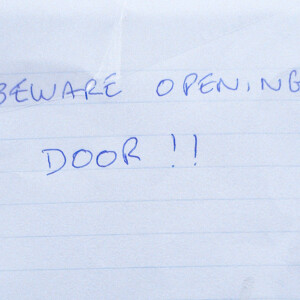 BEWARE OPENING
DOOR !!